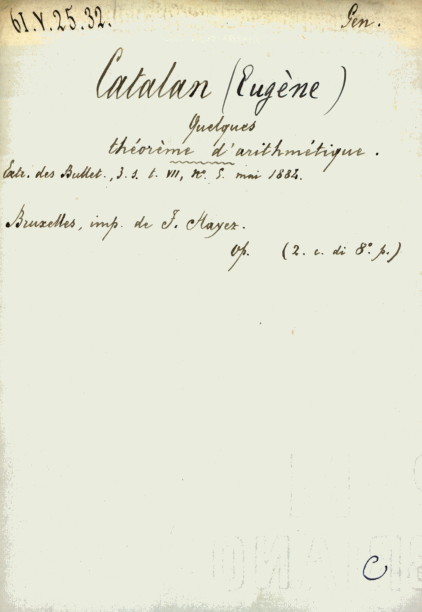 61.V.25.32. Gen.
Catalan (Eugène)
Quelques
théorème d'arithmétique.
Extr. des Bullet., 3. s. t. VII, n.° 5. mai 1884.
Bruxelles, imp. de F. Hayez.
Op. (2. c. di 8.° p.)
C